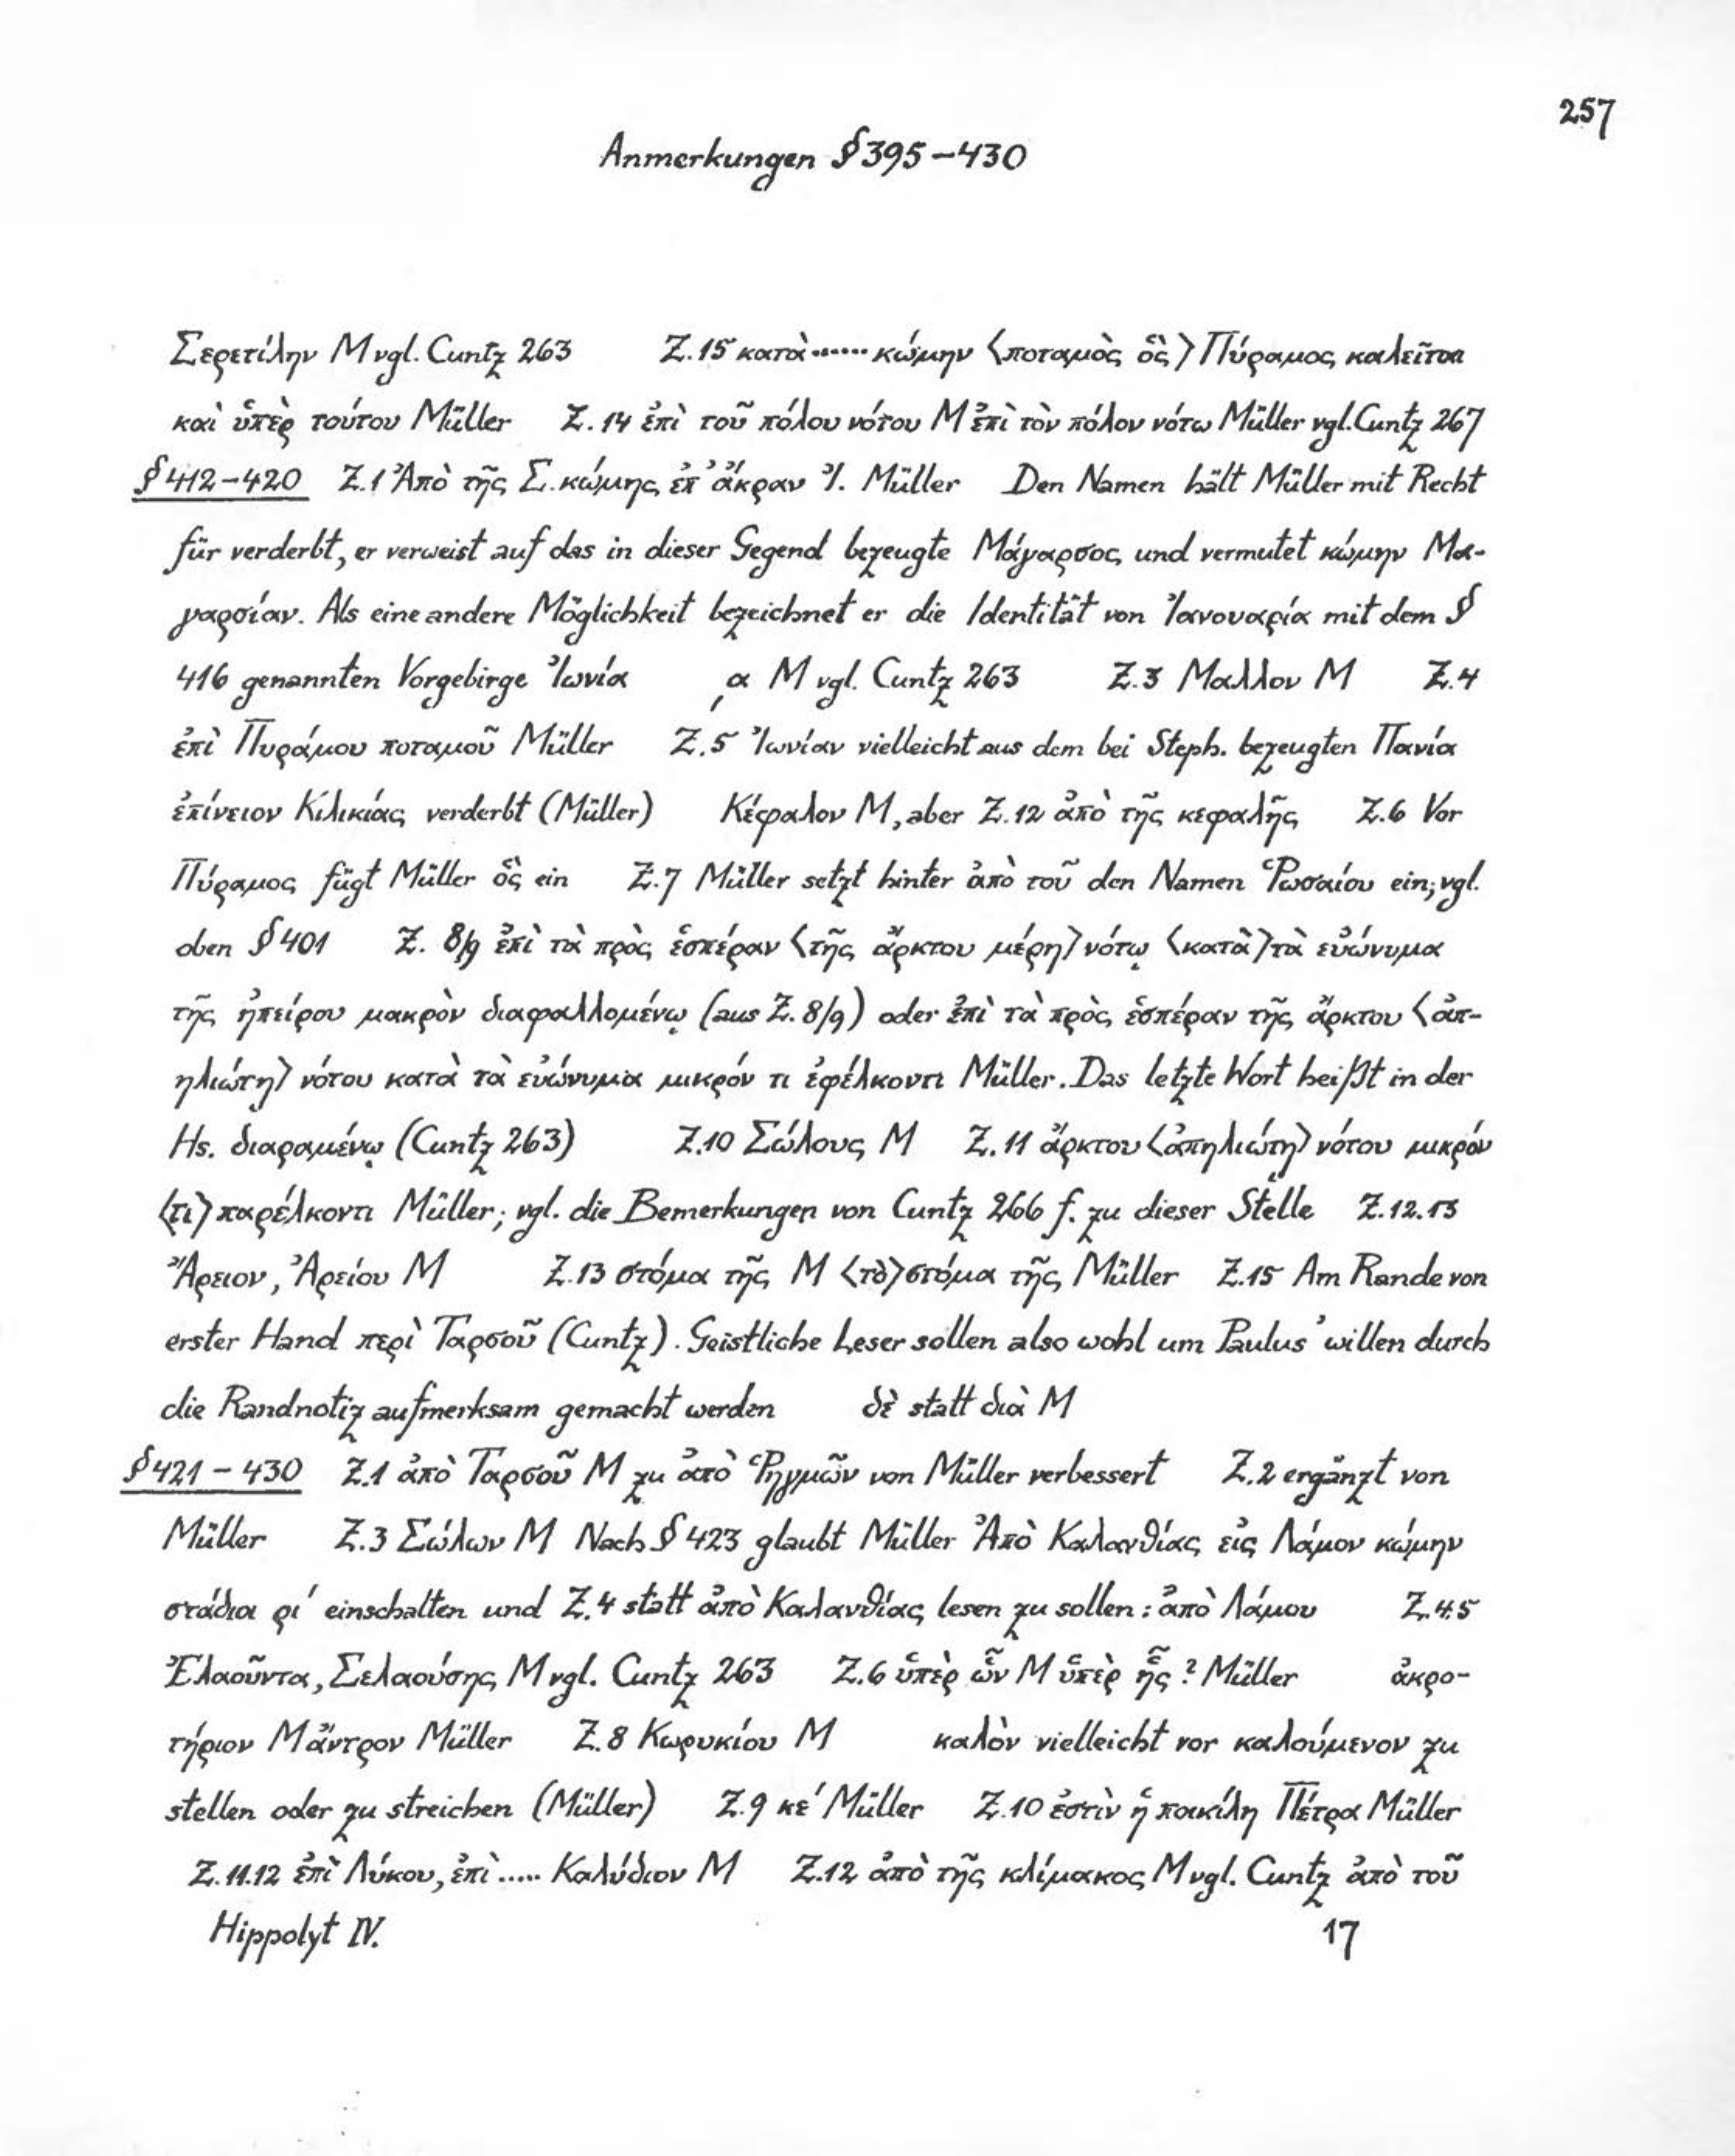 257
Anmerkungen § 395–430
Σερετίλην M vgl. Cuntz 263 Z. 15 κατὰ ...... κώμην ⟨ποταμὸς ὃς⟩ Πύραμος καλεῖται
καὶ ὑπὲρ τούτου Müller Z. 14 ἐπὶ τοῦ πόλου νότου M ἐπὶ τὸν πόλον νότω Müller vgl. Cuntz 267
§ 412–420 Z. 1 Ἀπὸ τῆς Σ. κώμης ἐπ' ἄκραν Ἰ. Müller Den Namen hält Müller mit Recht
für verderbt, er verweist auf das in dieser Gegend bezeugte Μάγαρσος und vermutet κώμην Μα-
γαρσίαν. Als eine andere Möglichkeit bezeichnet er die Identität von Ἰανουαρία mit dem §
416 genannten Vorgebirge Ἰωνία ͵α M vgl. Cuntz 263 Z. 3 Μαλλον M Z. 4
ἐπὶ Πυράμου ποταμοῦ Müller Z. 5 Ἰωνίαν vielleicht aus dem bei Steph. bezeugten Πανία
ἐπίνειον Κιλικίας verderbt (Müller) Κέφαλον M, aber Z. 12 ἀπὸ τῆς κεφαλῆς Z. 6 Vor
Πύραμος fügt Müller ὃς ein Z. 7 Müller setzt hinter ἀπὸ τοῦ den Namen Ῥωσαίου ein; vgl.
oben § 401 Z. 8/9 ἐπὶ τὰ πρὸς ἑσπέραν ⟨τῆς ἄρκτου μέρη⟩ νότῳ ⟨κατὰ⟩ τὰ εὐώνυμα
τῆς ἠπείρου μακρὸν διαφαλλομένῳ (aus Z. 8/9) oder ἐπὶ τὰ πρὸς ἑσπέραν τῆς ἄρκτου ⟨ἀπ-
ηλιώτη⟩ νότου κατὰ τὰ εὐώνυμα μικρόν τι ἐφέλκοντι Müller. Das letzte Wort heißt in der
Hs. διαραμένῳ (Cuntz 263) Z. 10 Σώλους M Z. 11 ἄρκτου ⟨ἀπηλιώτη⟩ νότου μικρόν
⟨τι⟩ παρέλκοντι Müller; vgl. die Bemerkungen von Cuntz 266 f. zu dieser Stelle Z. 12. 13
Ἄρειον, Ἀρείου M Z. 13 στόμα τῆς M ⟨τὸ⟩ στόμα τῆς Müller Z. 15 Am Rande von
erster Hand περὶ Ταρσοῦ (Cuntz). Geistliche Leser sollen also wohl um Paulus' willen durch
die Randnotiz aufmerksam gemacht werden δὲ statt διὰ M
§ 421–430 Z. 1 ἀπὸ Ταρσοῦ M zu ἀπὸ Ῥηγμῶν von Müller verbessert Z. 2 ergänzt von
Müller Z. 3 Σώλων M Nach § 423 glaubt Müller Ἀπὸ Καλανθίας εἰς Λάμον κώμην
στάδιοι ρι' einschalten und Z. 4 statt ἀπὸ Καλανθίας lesen zu sollen: ἀπὸ Λάμου Z. 4. 5
Ἐλαοῦντα, Σελαούσης M vgl. Cuntz 263 Z. 6 ὑπὲρ ὧν M ὑπὲρ ἧς? Müller ἀκρο-
τήριον Μάντρον Müller Z. 8 Κωρυκίου M καλὸν vielleicht vor καλούμενον zu
stellen oder zu streichen (Müller) Z. 9 κε' Müller Z. 10 ἐστὶν ἡ ποικίλη Πέτρα Müller
Z. 11. 12 ἐπὶ Λύκου, ἐπὶ ..... Καλύδιον M Z. 12 ἀπὸ τῆς κλίμακος M vgl. Cuntz ἀπὸ τοῦ
Hippolyt IV. 17